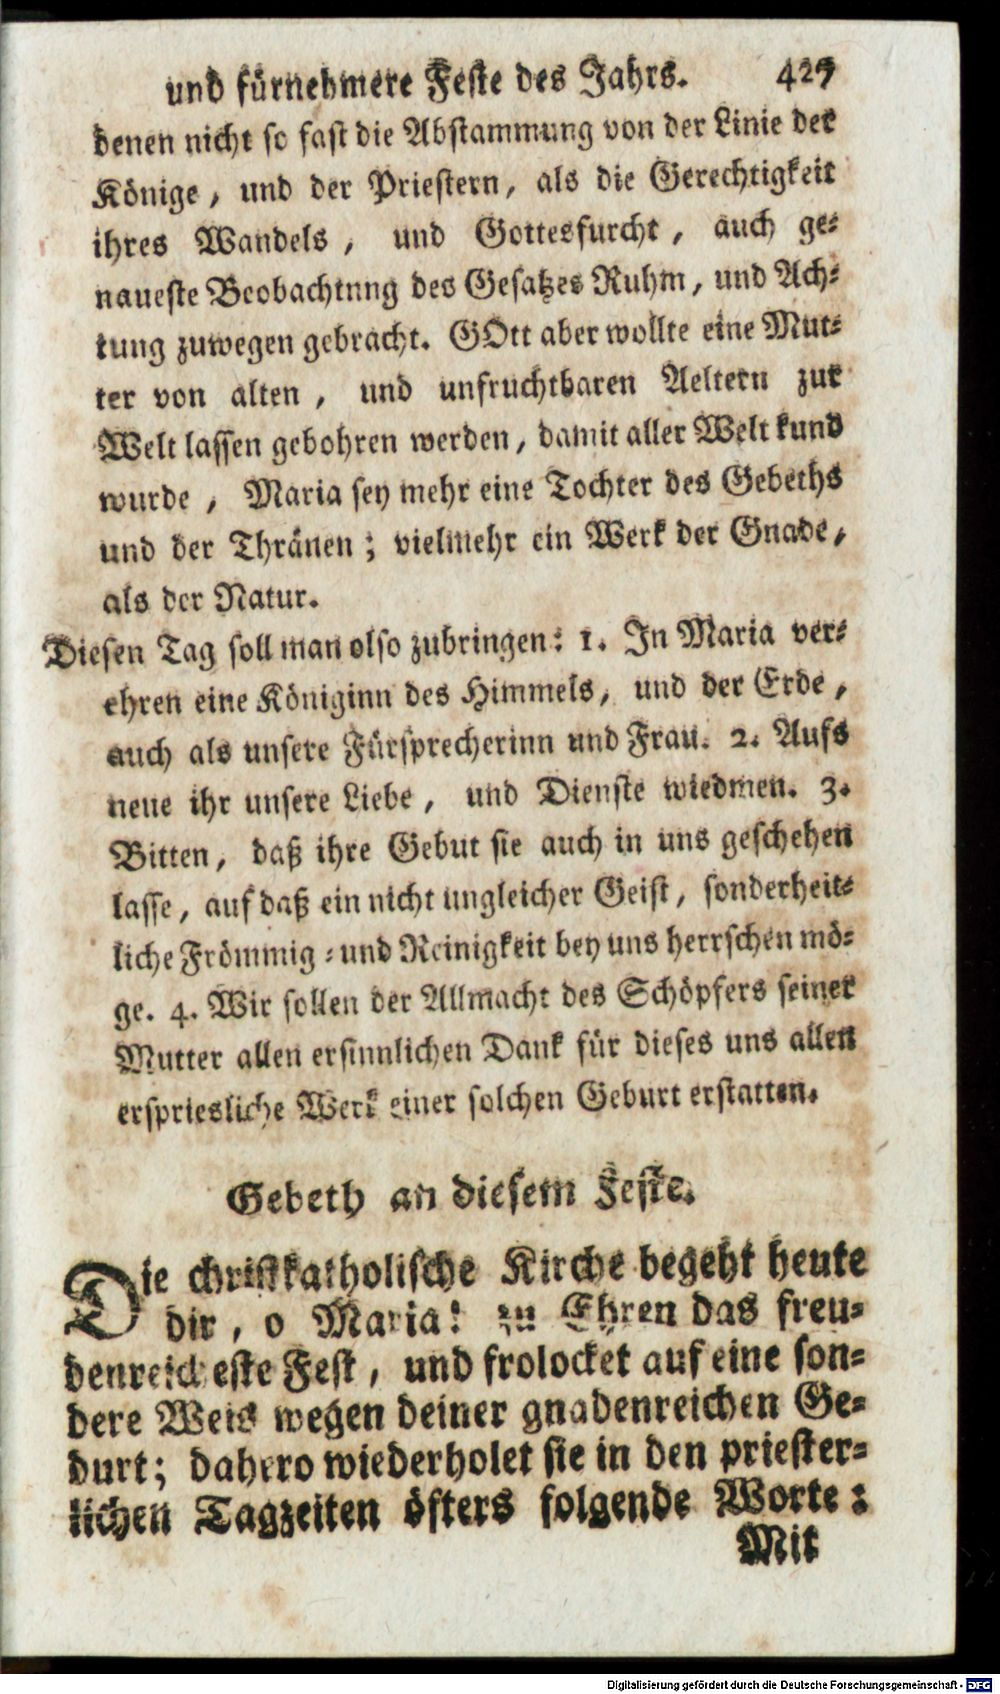 und fürnehmere Feste des Jahrs. 427
denen nicht so fast die Abstammung von der Linie der
Könige, und der Priestern, als die Gerechtigkeit
ihres Wandels, und Gottesfurcht, auch ge-
naueste Beobachtung des Gesatzes Ruhm, und Ach-
tung zuwegen gebracht. GOtt aber wollte eine Mut-
ter von alten, und unfruchtbaren Aeltern zur
Welt lassen gebohren werden, damit aller Welt kund
wurde, Maria sey mehr eine Tochter des Gebeths
und der Thränen; vielmehr ein Werk der Gnade,
als der Natur.
Diesen Tag soll man olso zubringen: 1. In Maria ver-
ehren eine Königinn des Himmels, und der Erde,
auch als unsere Fürsprecherinn und Frau. 2. Aufs
neue ihr unsere Liebe, und Dienste wiedmen. 3.
Bitten, daß ihre Gebut sie auch in uns geschehen
lasse, auf daß ein nicht ungleicher Geist, sonderheit-
liche Frömmig- und Reinigkeit bey uns herrschen mö-
ge. 4. Wir sollen der Allmacht des Schöpfers seiner
Mutter allen ersinnlichen Dank für dieses uns allen
erspriesliche Werk einer solchen Geburt erstatten.
Gebeth an diesem Feste.
Die christkatholische Kirche begeht heute
dir, o Maria! zu Ehren das freu-
denreicheste Fest, und frolocket auf eine son-
dere Weis wegen deiner gnadenreichen Ge-
burt; dahero wiederholet sie in den priester-
lichen Tagzeiten öfters folgende Worte:
Mit
Digitalisierung gefördert durch die Deutsche Forschungsgemeinschaft - DFG